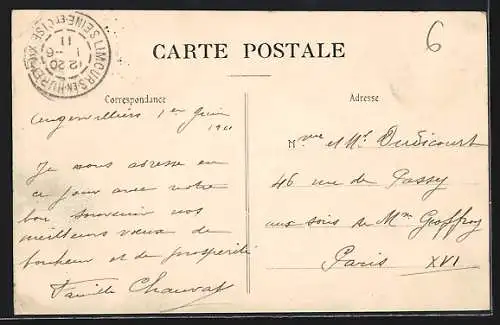 LIMOURS-EN-HUREPOIX
SEINE-ET-OISE
12 20
1 - 6
11
6
CARTE POSTALE
Correspondance
Adresse
Angervilliers 1er Juin
1911
Je vous adresse en
ce jour avec notre
bon souvenir nos
meilleurs vœux de
bonheur et de prospérité
Famille Chauvat
Mme et Mr Dudicourt
46 rue de Passy
aux soins de Mme Geoffroy
Paris XVI